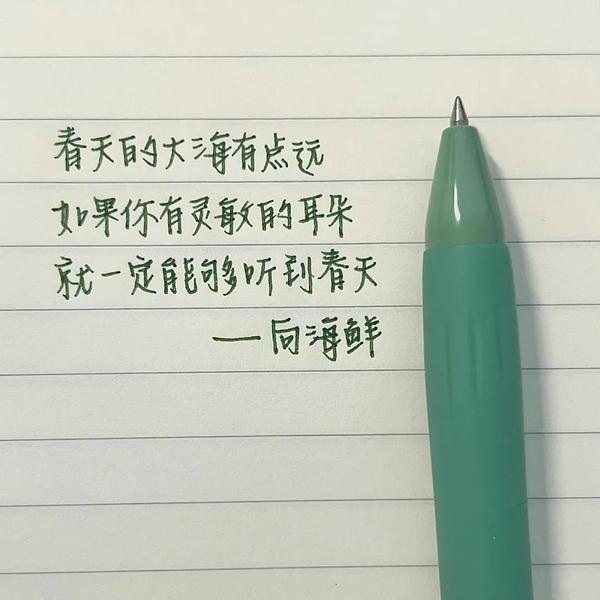 春天的大海有点远
如果你有灵敏的耳朵
就一定能够听到春天
——向海鲜